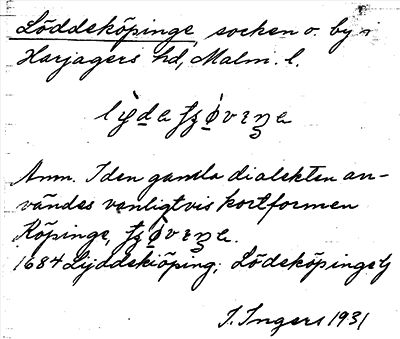 Löddeköpinge socken o. by i
Harjagers hd, Malm. l.
Anm. I den gamla dialekten an-
vändes vanligtvis kortformen
Köpinge,
1684 Lyddekiöping; Lödeköpinge
I. Ingers 1931